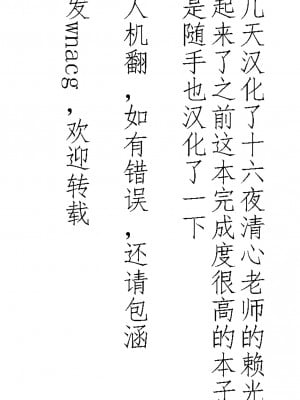 几天汉化了十六夜清心老师的赖光
起来了之前这本完成度很高的本子
是随手也汉化了一下
人机翻，如有错误，还请包涵
发wnacg，欢迎转载